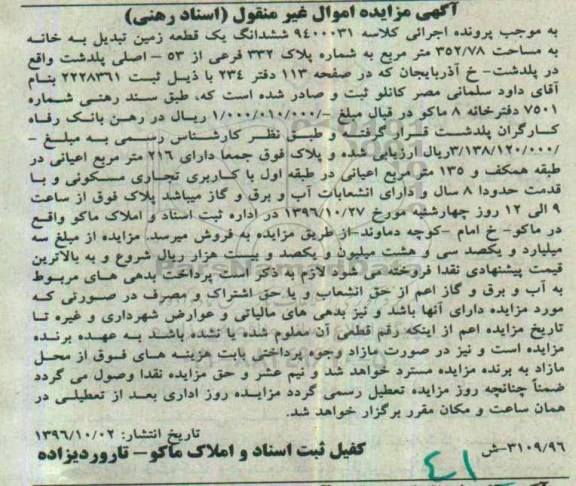 آگهی مزایده اموال غیر منقول (اسناد رهنی)
به موجب پرونده اجرائی کلاسه ۹۴۰۰۰۳۱ ششدانگ یک قطعه زمین تبدیل به خانه
به مساحت ۳۵۲/۷۸ متر مربع به شماره پلاک ۳۳۲ فرعی از ۵۳ - اصلی پلدشت واقع
در پلدشت- خ آذربایجان که در صفحه ۱۱۳ دفتر ۲۳٤ با ذیل ثبت ۲۲۲۸۳۶۱ بنام
آقای داود سلمانی مصر کانلو ثبت و صادر شده است که، طبق سند رهنی شماره
۷۵۰۱ دفترخانه ۸ ماکو در قبال مبلغ -/۱/۰۰۰/۰۱۰/۰۰۰ ریال در رهن بانک رفاه
کارگران پلدشت قرار گرفته و طبق نظر کارشناس رسمی به مبلغ -
/۳/۱۳۸/۱۲۰/۰۰۰ریال ارزیابی شده و پلاک فوق جمعا دارای ۲۱۶ متر مربع اعیانی در
طبقه همکف و ۱۳۵ متر مربع اعیانی در طبقه اول با کاربری تجاری مسکونی و با
قدمت حدودا ۸ سال و دارای انشعابات آب و برق و گاز میباشد پلاک فوق از ساعت
۹ الی ۱۲ روز چهارشنبه مورخ ۱۳۹٦/۱۰/۲۷ در اداره ثبت اسناد و املاک ماکو واقع
در ماکو- خ امام -کوچه دماوند-از طریق مزایده به فروش میرسد. مزایده از مبلغ سه
میلیارد و یکصد سی و هشت میلیون و یکصد و بیست هزار ریال شروع و به بالاترین
قیمت پیشنهادی نقدا فروخته می شود لازم به ذکر است پرداخت بدهی های مربوط
به آب و برق و گاز اعم از حق انشعاب و یا حق اشتراک و مصرف در صورتی که
مورد مزایده دارای آنها باشد و نیز بدهی های مالیاتی و عوارض شهرداری و غیره تا
تاریخ مزایده اعم از اینکه رقم قطعی آن معلوم شده یا نشده باشد به عهده برنده
مزایده است و نیز در صورت مازاد وجوه پرداختی بابت هزینه های فوق از محل
مازاد به برنده مزایده مسترد خواهد شد و نیم عشر و حق مزایده نقدا وصول می گردد
ضمناً چنانچه روز مزایده تعطیل رسمی گردد مزایده روز اداری بعد از تعطیلی در
همان ساعت و مکان مقرر برگزار خواهد شد.
تاریخ انتشار: ۱۳۹٦/۱۰/۰۲
۳۱۰۹/۹٦-ش کفیل ثبت اسناد و املاک ماکو- تاروردیزاده
٤١